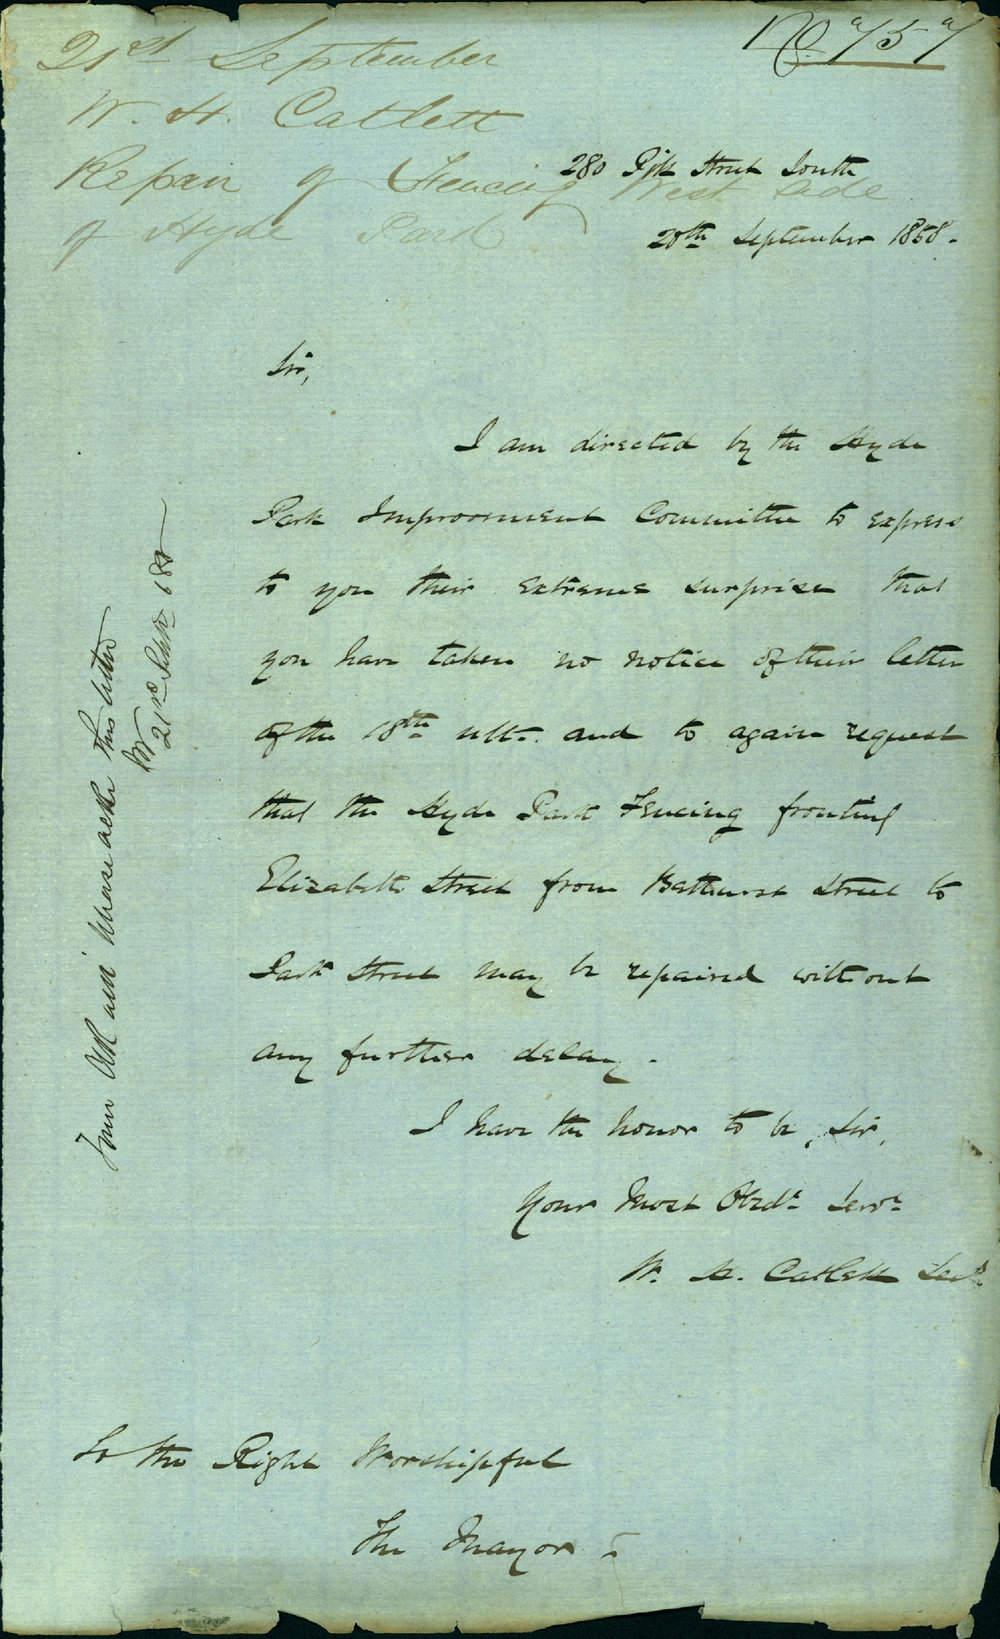 No. 757
21st September
W. H. Catlett
Repair of Fencing West Side
of Hyde Park
280 Pitt Street South
20th September 1858.
Sir,
I am directed by the Hyde
Park Improvement Committee to express
to you their extreme surprise that
you have taken no notice of their letter
of the 18th ult. and to again request
that the Hyde Park Fencing fronting
Elizabeth Street from Bathurst Street to
Park Street may be repaired without
any further delay.
I have the honor to be, Sir,
Your Most Obedt. Servt.
W. H. Catlett Secy.
To the Right Worshipful
The Mayor
Town Clk will please this letter
21st Septr 1858